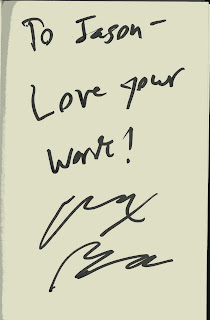 To Jason-
Love your
work!